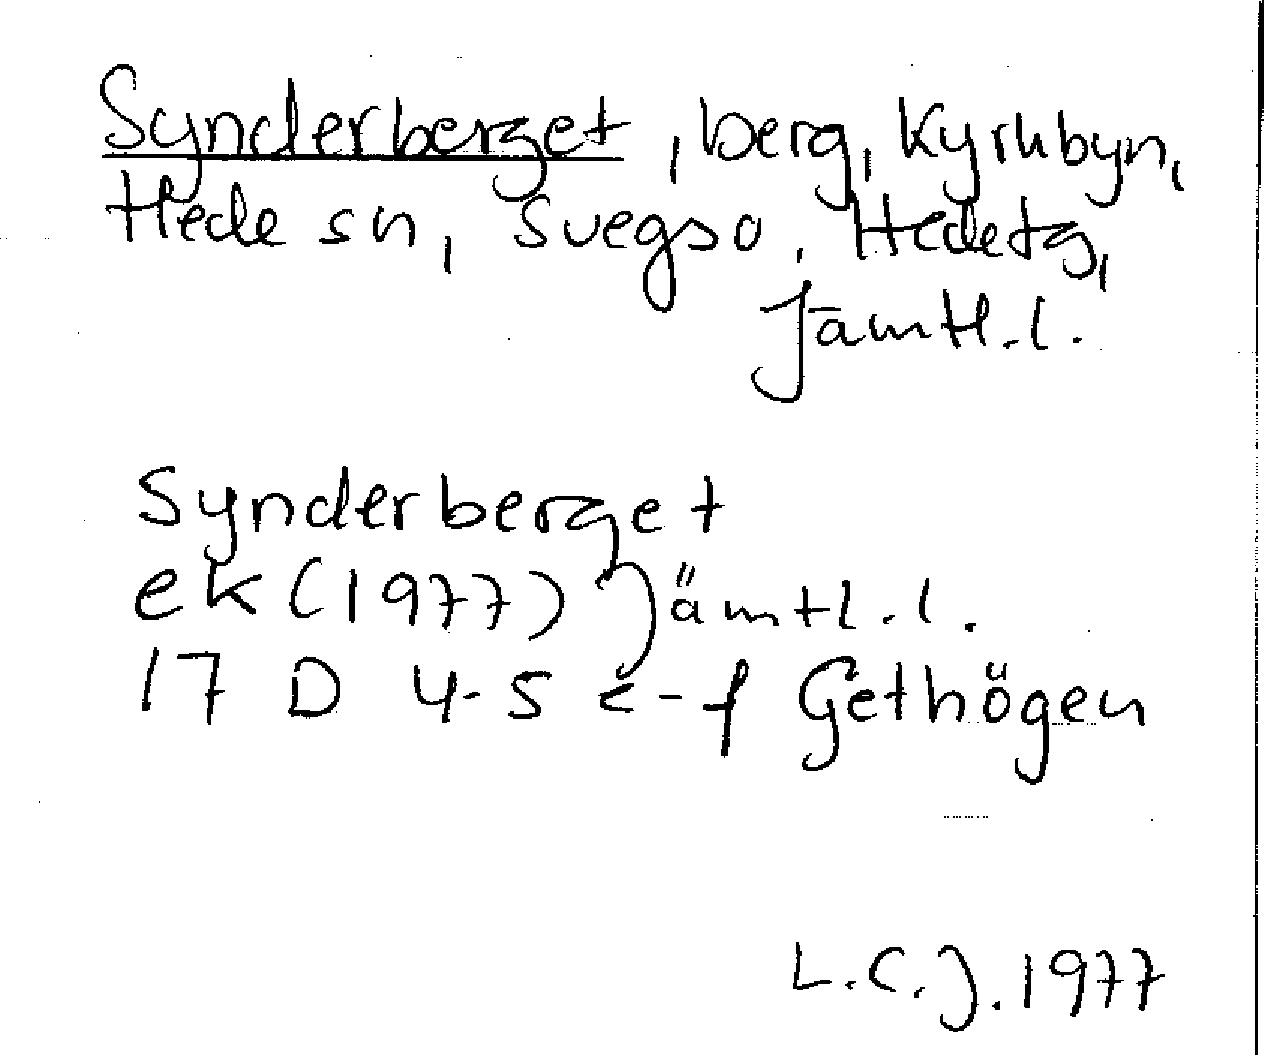 Synderberget, berg, Kyrkbyn,
Hede sn, Svegso, Hedetg,
Jämtl.l.
Synderberget
ek (1977) Jämtl.l.
17 D 4-5 e-f Gethögen
L.C.J. 1977